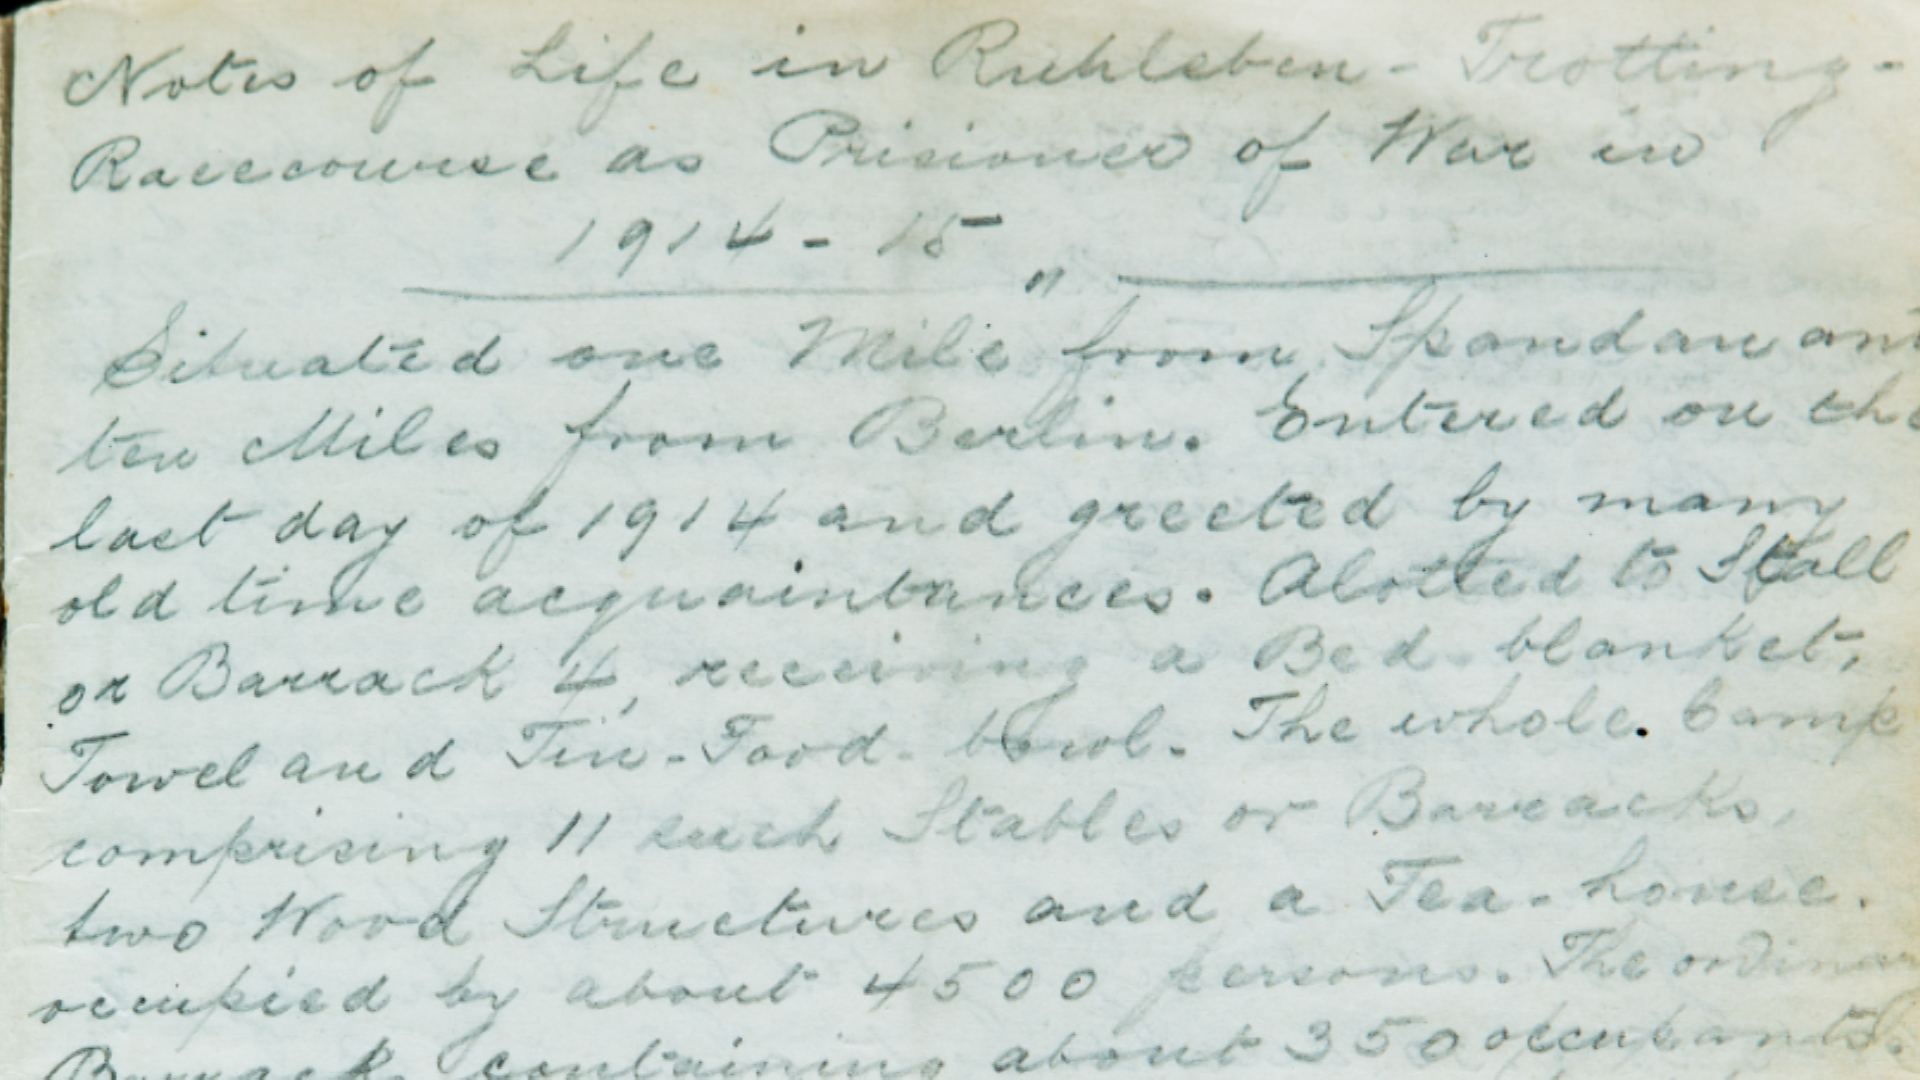 Notes of Life in Ruhleben - Trotting -
Racecourse as Prisioner of War in
1914 - 15 "
Situated one Mile from Spandau and
ten Miles from Berlin. Entered on the
last day of 1914 and greeted by many
old time acquaintances. Alotted to Stall
or Barrack 4, receiving a Bed - blanket,
Towel and Tin - Food - bowl. The whole. Camp
comprising 11 such Stables or Barracks,
two Wood Structures and a Tea - house.
occupied by about 4500 persons. The ordinary
Barrack containing about 350 occupants.